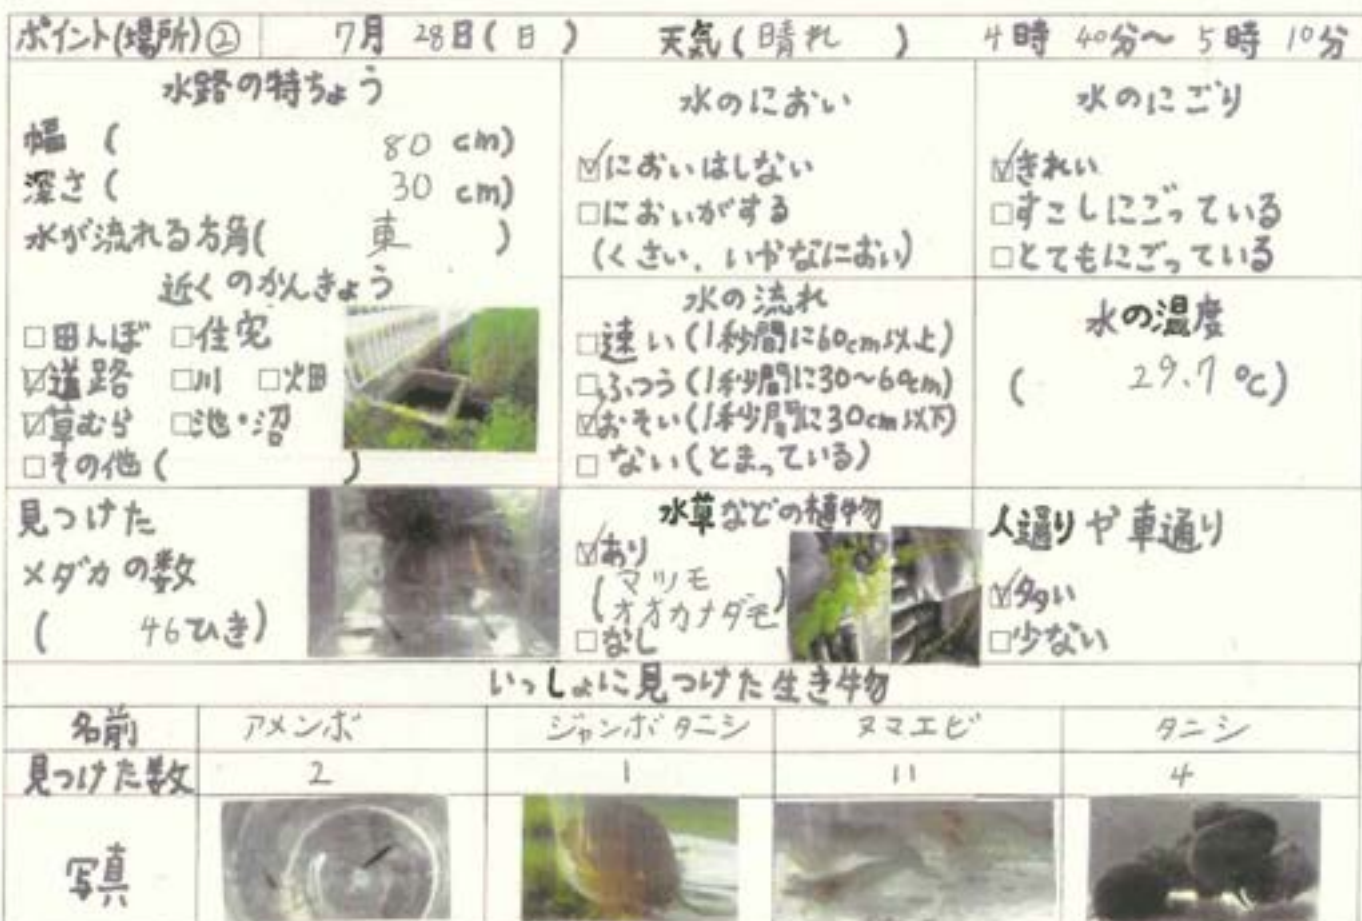 ポイント(場所)② 7月 28日(日) 天気(晴れ) 4時 40分〜 5時 10分
水路の特ちょう
幅 ( 80 cm)
深さ ( 30 cm)
水が流れる方角( 東 )
近くのかんきょう
□田んぼ □住宅
☑道路 □川 □畑
☑草むら □池・沼
□その他 ( )
水のにおい
☑においはしない
□においがする
(くさい、いやなにおい)
水のにごり
☑きれい
□すこしにごっている
□とてもにごっている
水の流れ
□速い(1秒間に60cm以上)
□ふつう(1秒間に30〜60cm)
☑おそい(1秒間に30cm以下)
□ない(とまっている)
水の温度
( 29.7 ℃)
見つけた
メダカの数
( 46ひき)
水草などの植物
☑あり
(マツモ
オオカナダモ)
□なし
人通りや車通り
☑多い
□少ない
いっしょに見つけた生き物
名前 アメンボ ジャンボタニシ ヌマエビ タニシ
見つけた数 2 1 11 4
写真